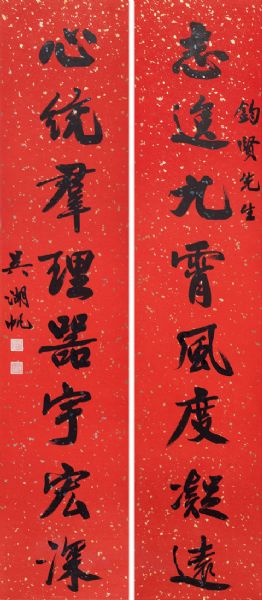 志逸九霄風度凝遠
鈞賢先生
心統羣理器宇宏深
吳湖帆